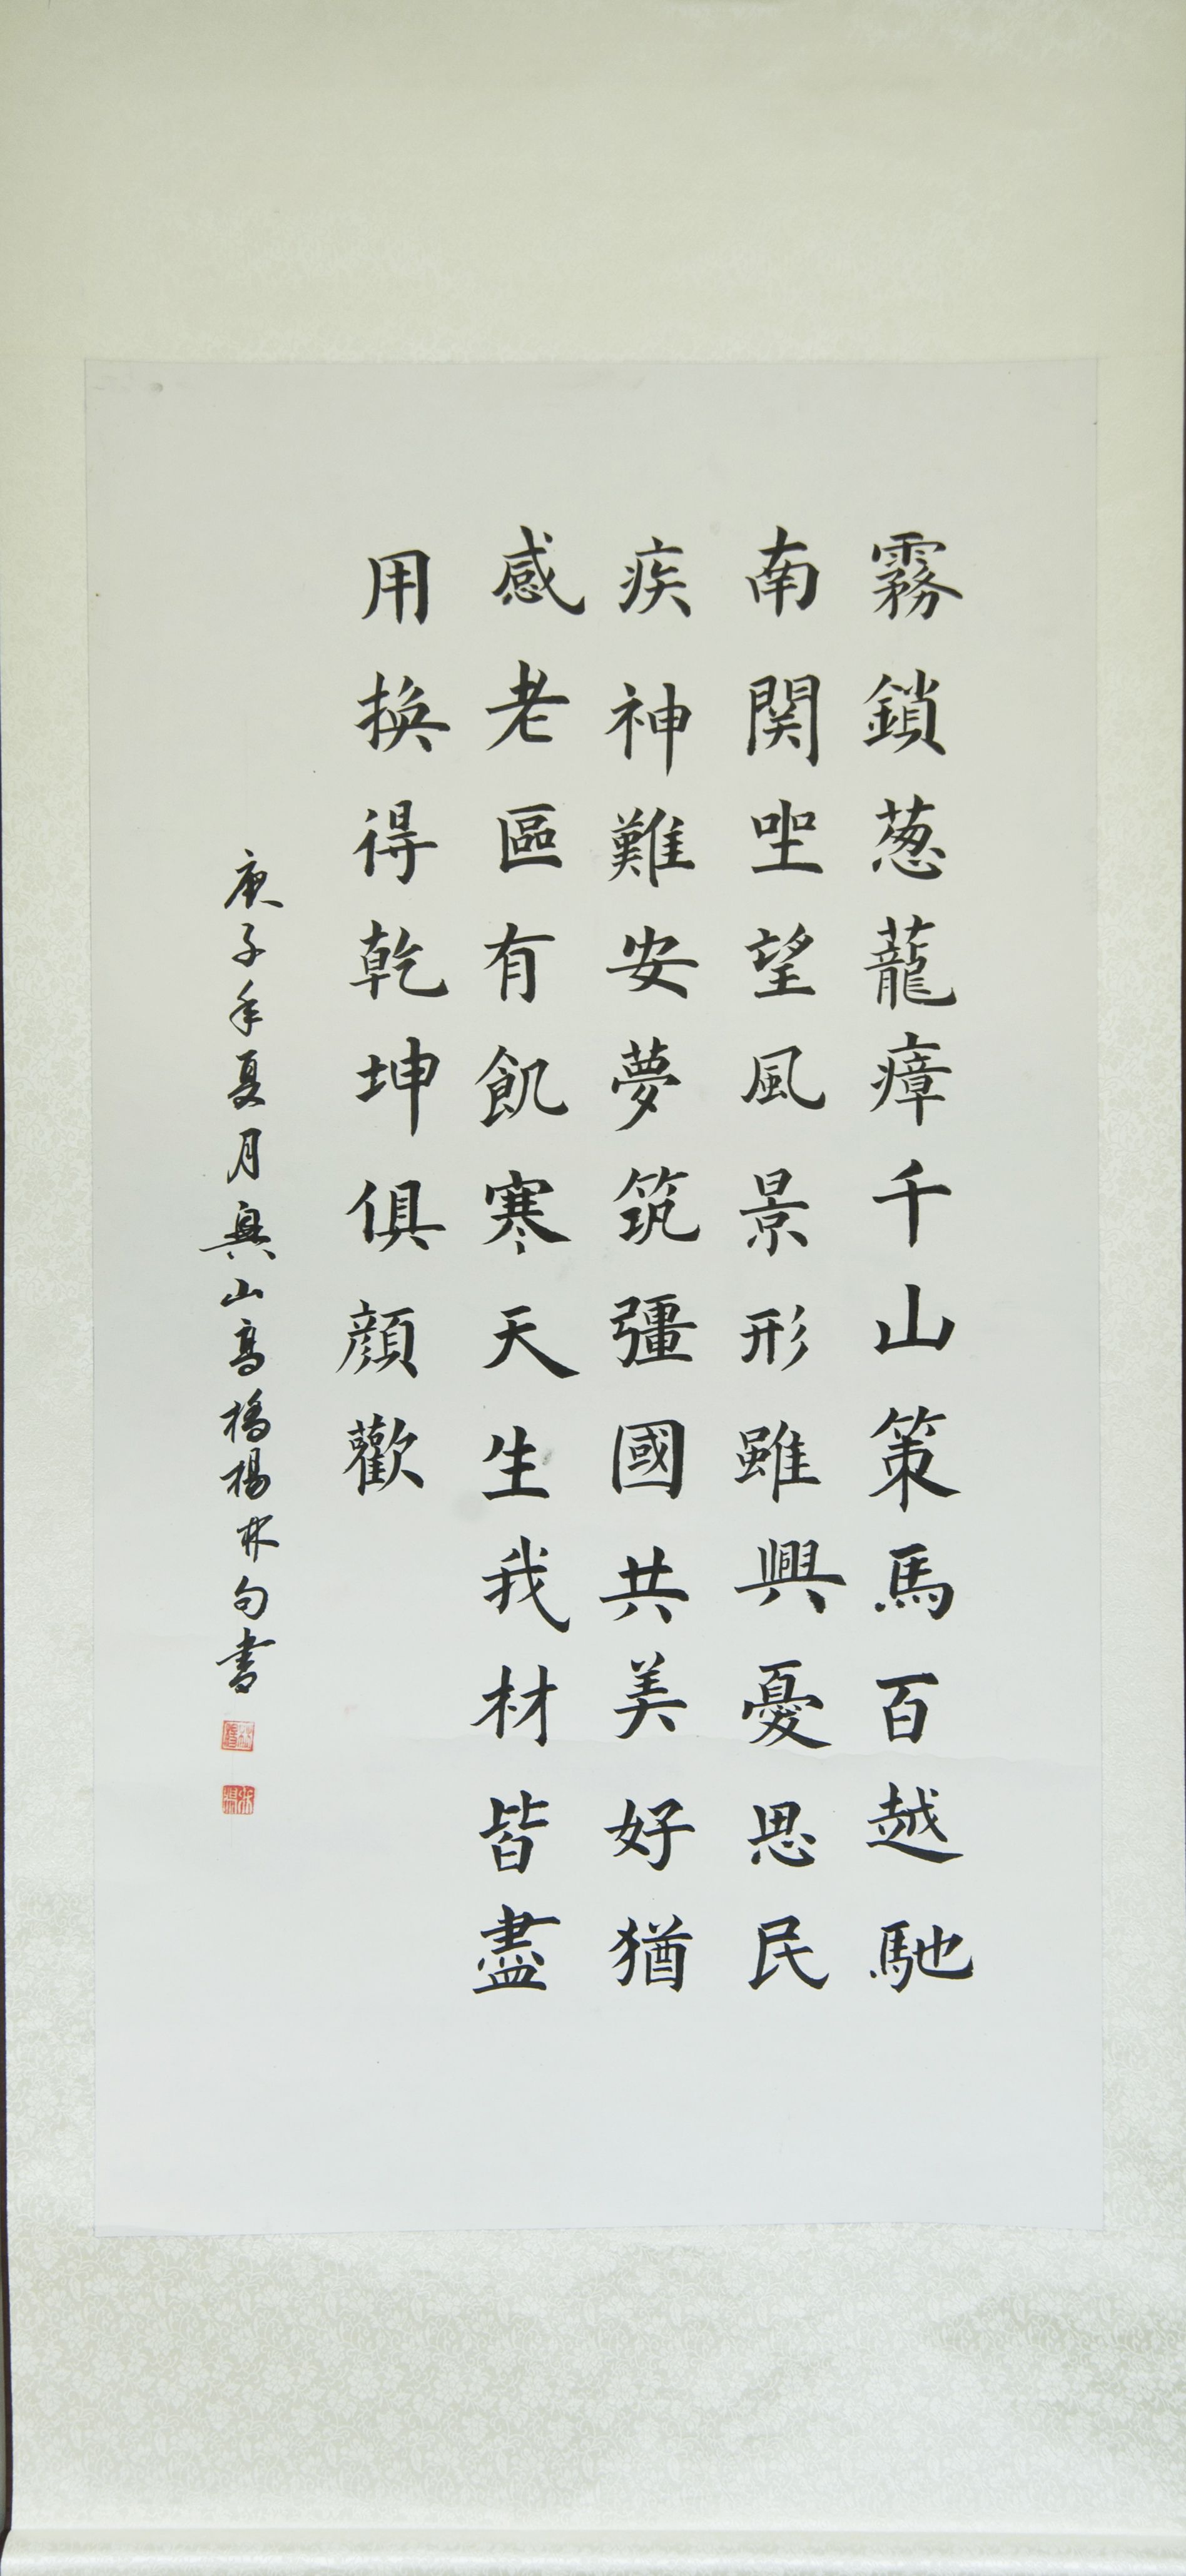 霧鎖葱蘢瘴千山策馬百越馳
南関坐望風景形雖興憂思民
疾神難安夢筑彊國共美好猶
感老區有飢寒天生我材皆盡
用換得乾坤俱顔歡
庚子年夏月興山高橋楊林句書